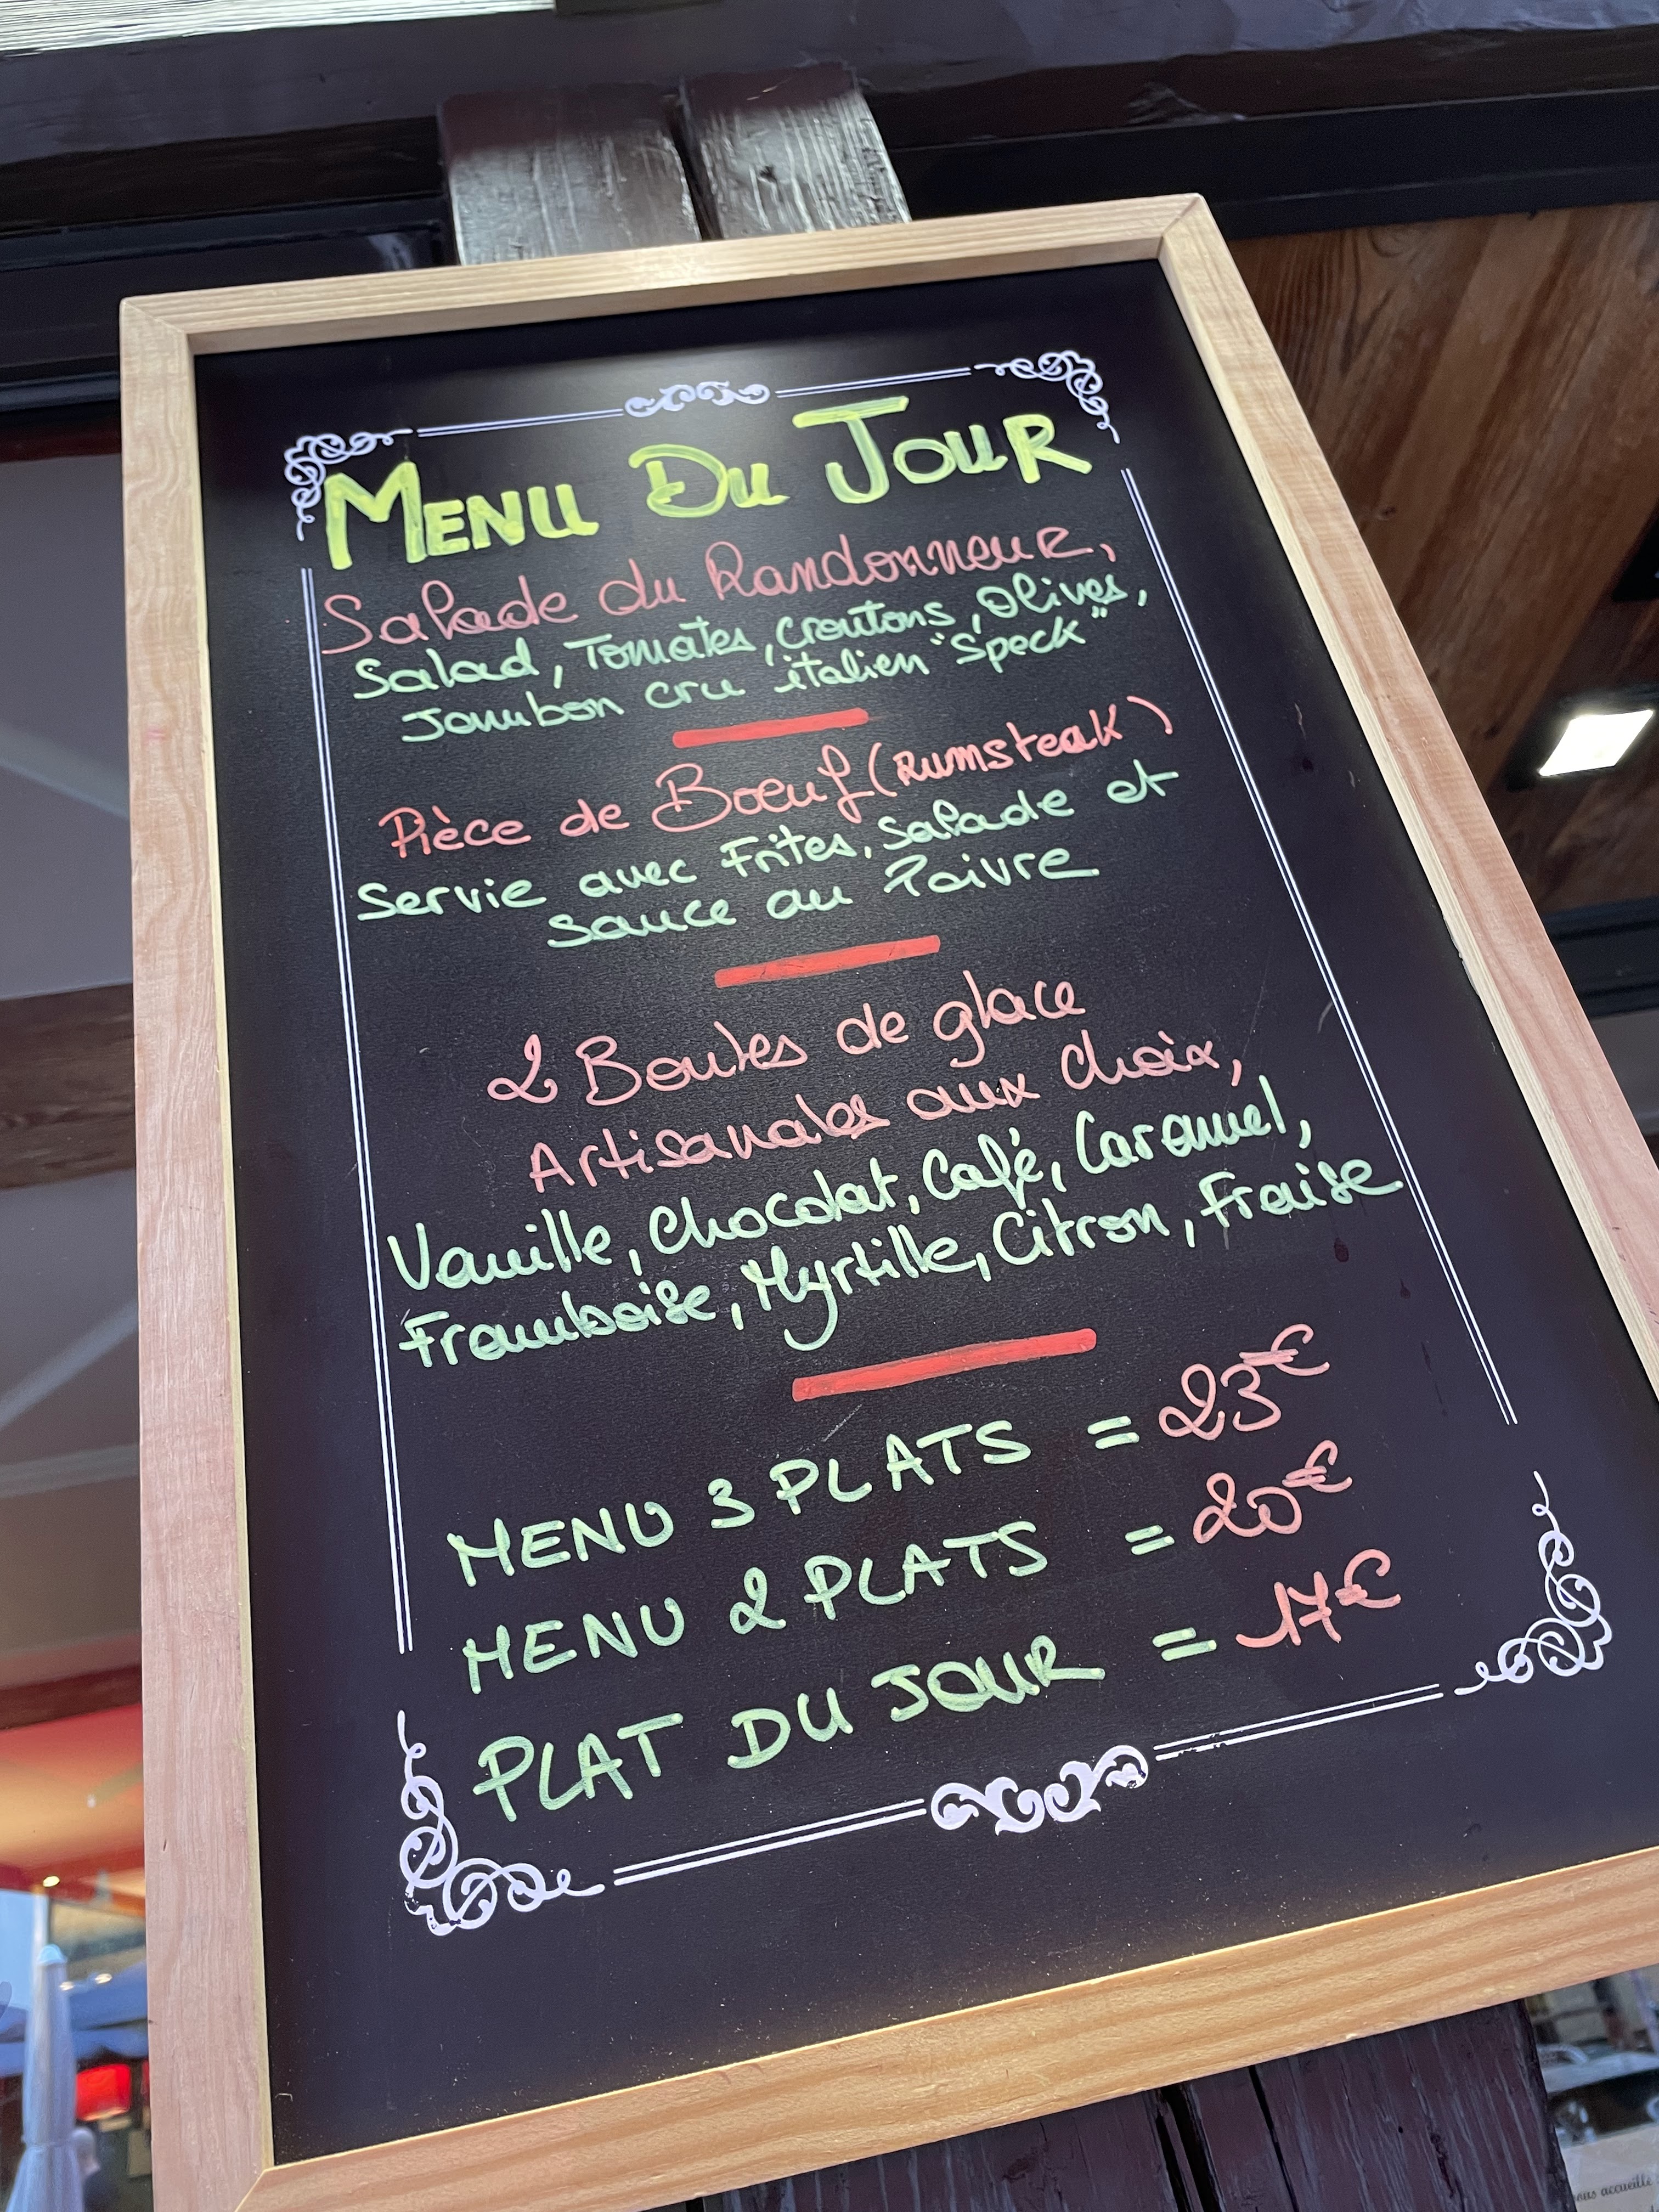 MENU DU JOUR
Salade du Randonneur,
Salad, Tomates, croutons, Olives,
Jambon cru italien "Speck"
Pièce de Boeuf (Rumsteak)
Servie avec Frites, Salade et
sauce au Poivre
2 Boules de glace
Artisanales aux choix,
Vanille, Chocolat, Café, Caramel,
Framboise, Myrtille, Citron, Fraise
MENU 3 PLATS = 23€
MENU 2 PLATS = 20€
PLAT DU JOUR = 17€
nous accueille